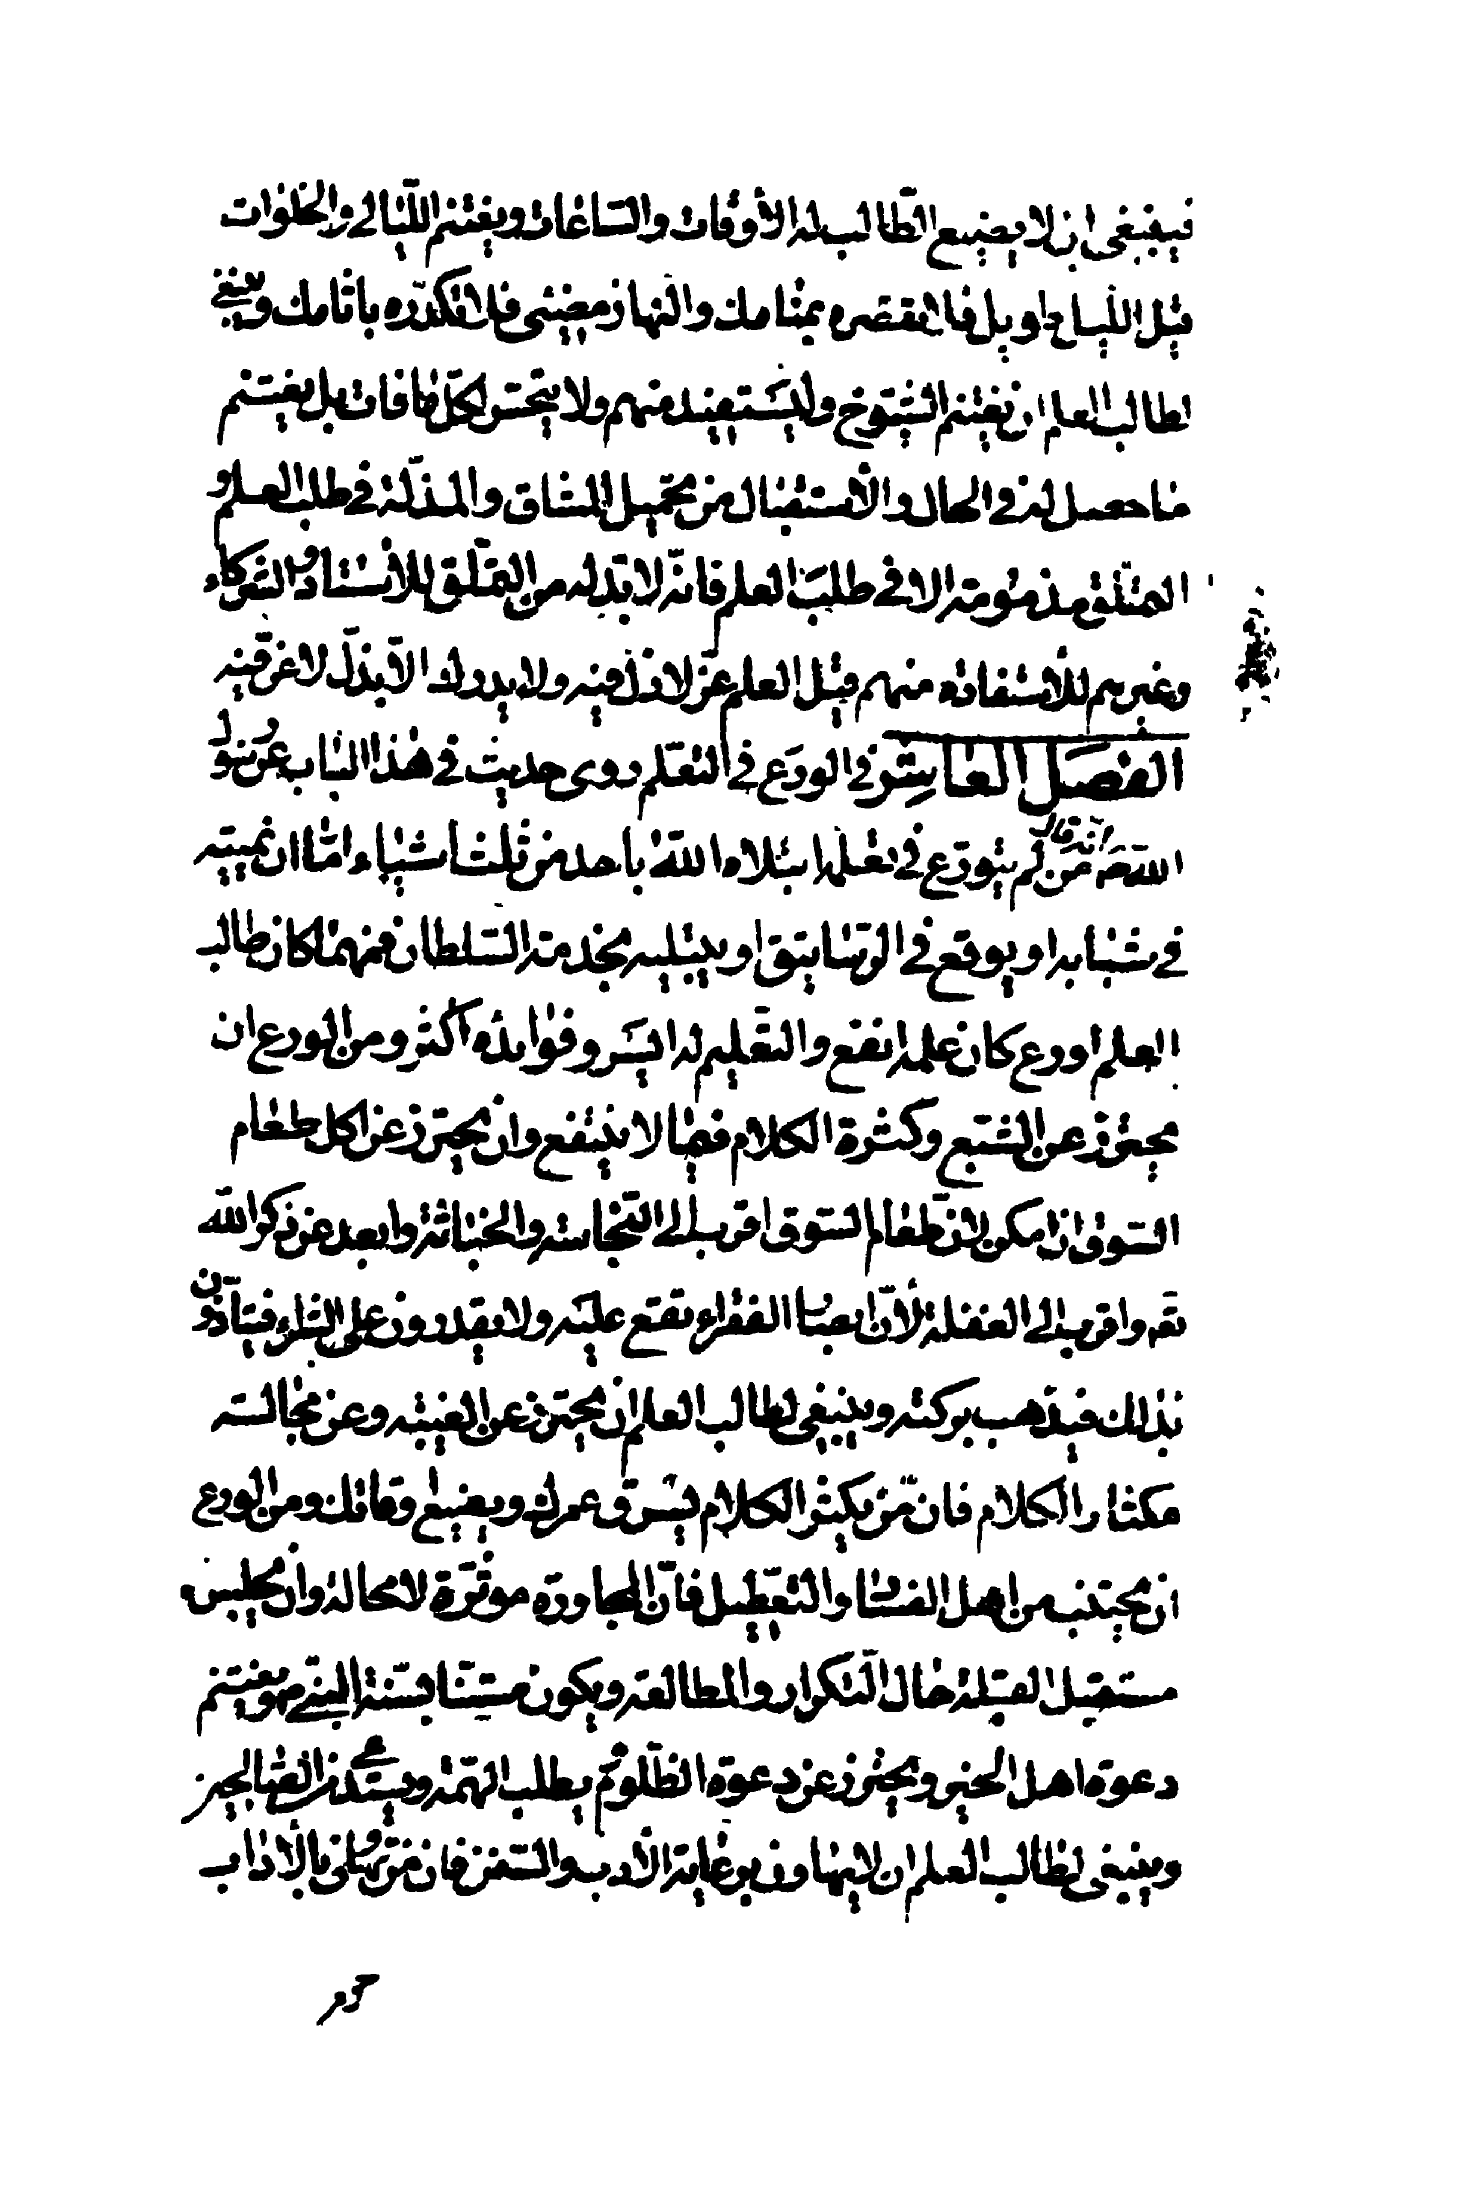 فينبغى ان لا يضيع الطالب له الاوقات والساعات ويغتنم الليالى والخلوات
قيل الليل طويل فلا تقصره بمنامك والنهار مضيئى فلا تكدره باثامك وينبغى
لطالب العلم ان يغتنم الشيوخ وليستفيد منهم ولا يتحسر لكل ما فات بل يغتنم
ما حصل له فى الحال والاستقبال من تحميل المشاق والمذلة فى طلب العلم و
التملق مذمومة الا فى طلب العلم فانه لا بد له من التملق للاستاد والشركاء
وغيرهم للاستفادة منهم قيل العلم عز لا ذل فيه ولا يدرك الا بذل لا عز فيه
الفصل العاشر فى الورع فى التعلم روى حديث فى هذا الباب عن رسول
الله صم انه قال من لم يتورع فى تعلمه ابتلاه الله باحد من ثلث اشياء اما ان يميته
فى شبابه او يوقع فى الرساتيق او يبتليه بخدمة السلطان فمهما كان طالب
العلم اورع كان علمه انفع والتعليم له ايسر وفوايده اكثر ومن الورع ان
يحترز عن الشبع وكثرة الكلام فيما لا ينتفع وان يحترز عن اكل طعام
السوق ان امكن لان طعام السوق اقرب الى النجاسة والخباثة وابعد عن ذكر الله
تعه واقرب الى الغفلة لان ابصار الفقراء تقع عليه ولا يقدرون على الشراء فيتأذون
بذلك فيذهب بركته وينبغى لطالب العلم ان يحترز عن الغيبة وعن مجالسة
مكثار الكلام فان من يكثر الكلام يسرق عمرك ويضيع وقاتك ومن الورع
ان يجتنب من اهل الفساد والتعطيل فان المجاورة موثرة لا محالة وان يجلس
مستقبل القبلة حال التكرار والمطالعة ويكون مستنا بسنة النبى ص ويغتنم
دعوة اهل الخير ويحترز عن دعوة المظلوم ثم يطلب الهمة ويستدعى من الصالحين
وينبغى لطالب العلم ان لا يتهاون برعاية الادب والسنن فان من تهاون بالاداب
حرم